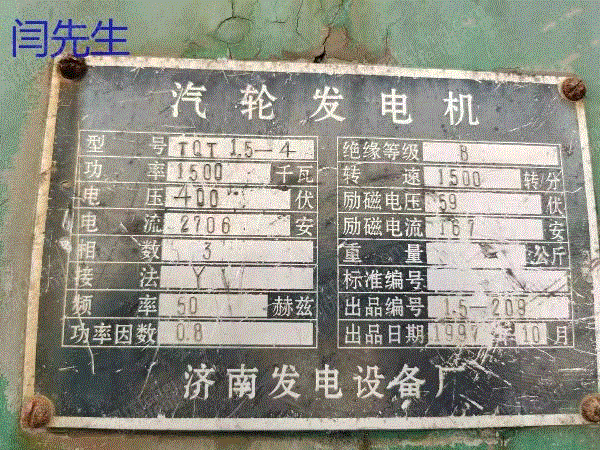 闫先生
汽轮发电机
型号 TQT 1.5-4 绝缘等级 B
功率 1500 千瓦 转速 1500 转分
电压 400 伏 励磁电压 59 伏
电流 2706 安 励磁电流 167 安
相数 3 重量 公斤
接法 Y 标准编号
频率 50 赫兹 出品编号 1.5-209
功率因数 0.8 出品日期 1997 年 10 月
济南发电设备厂